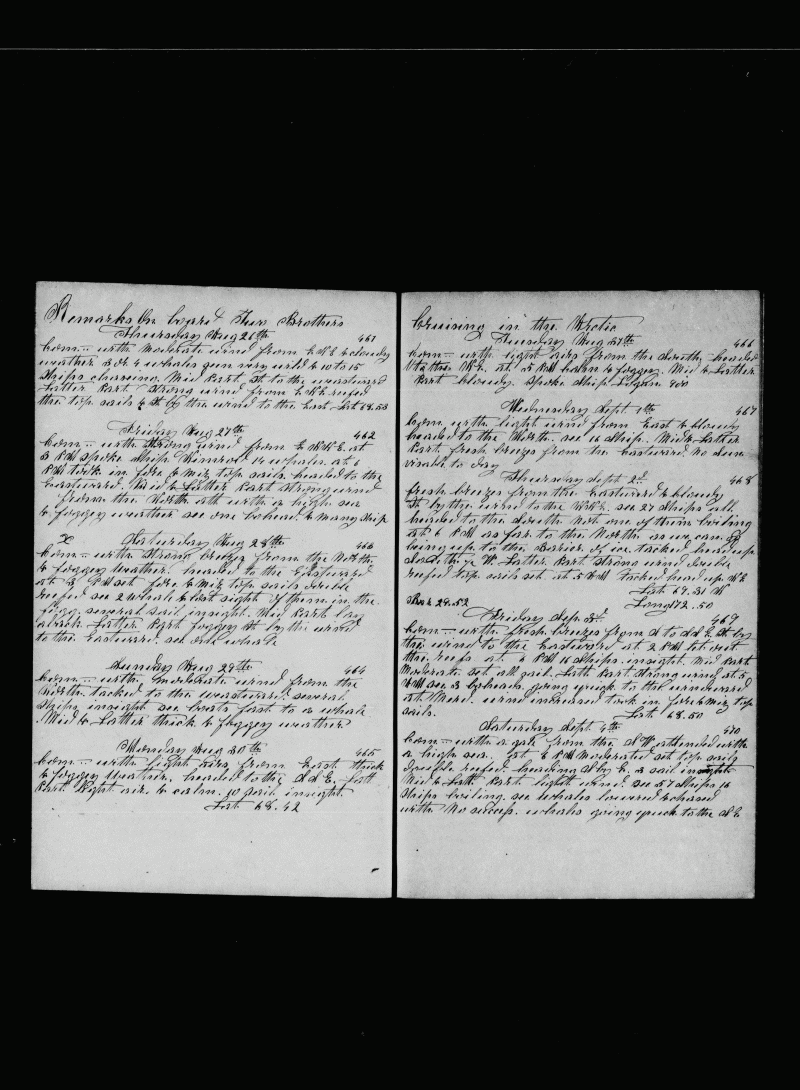 Remarks On board Two Brothers
Thursday Aug 26th 461
Com with Moderate wind from E N E & cloudy
weather 3 or 4 whales seen very wild & 10 to 15
Ships chasing. Mid Part St to the westward
Latter Part Strong wind from E N E reefed
the top sails & St by the wind to the Lat 68.50
Friday Aug 27th 462
Com with Strong wind from E N E. at
3 PM Spoke Ship Nimrod 14 whales. at 6
PM took in fore & miz top sails headed to the
Eastward. Mid & Latter Part Strong wind
from the North with a high sea
& foggy weather see one bohead & many Ship
X Saturday Aug 28th 463
Com with Strong breeze from the North
& foggy weather. headed to the Eastward
at 3 PM set fore & miz top sails double
reefed see 2 whale & lost sight of them in the
fogg. several sail insight. Mid Part lay
aback Latter Part foggy St by the wind
to the Eastward. see one whale
Sunday Aug 29th 464
Com with Moderate wind from the
North tacked to the westward. several
Ships insight see boats fast to a whale
Mid & Latter thick & foggy weather
Monday Aug 30th 465
Com with light airs from East thick
& foggy Weather. headed to the S S E. Latt
Part light air & calm. 30 sail insight.
Lat 68.42
Cruising in the Arctic
Tuesday Aug 31th 466
Com with light airs from the South headed
to the N E at 5 PM calm & foggy. Mid & Latter
Part cloudy. Spoke Ship 400
Wednesday Sept. 1th 467
Com with light wind from East & cloudy
headed to the North. see 16 Ship. Mid & Latter
Part fresh breeze from the Eastward. No Sun
visable to day
Thursday Sept 2d 468
fresh breezes from the Eastward & cloudy
St by the wind to the see 27 Ships all
headed to the South not one of them boiling
at 6 PM as far to the North as we can
being up to the Barier of ice. tacked head up
Latter Part Strong wind double
reefed top sails set. at 5 AM Tacked head up N E
Lat 69.31 N
Long 172.50
Bar 29.52
Friday Sep. 3d 469
Com with fresh breezes from S to S S E St by
the wind to the Eastward at 2 PM let out
the reefs at 6 PM 16 Ships insight. Mid Part
Moderate set all sail. Latt Part Strong wind at 5
AM see 3 boheads going quick to the windward
at Merd. wind increased took in fore & miz top
sails. Lat 68.50
Saturday Sept. 4th 470
Com with a gale from the attended with
a high sea. at 6 PM Moderated set top sails
double reefed. heading S by E. 3 sail insight
Mid & Latt Part light wind. see 27 Ships 16
Ships boiling. see whales lowered & chased
with No success. whales going quick to the S E